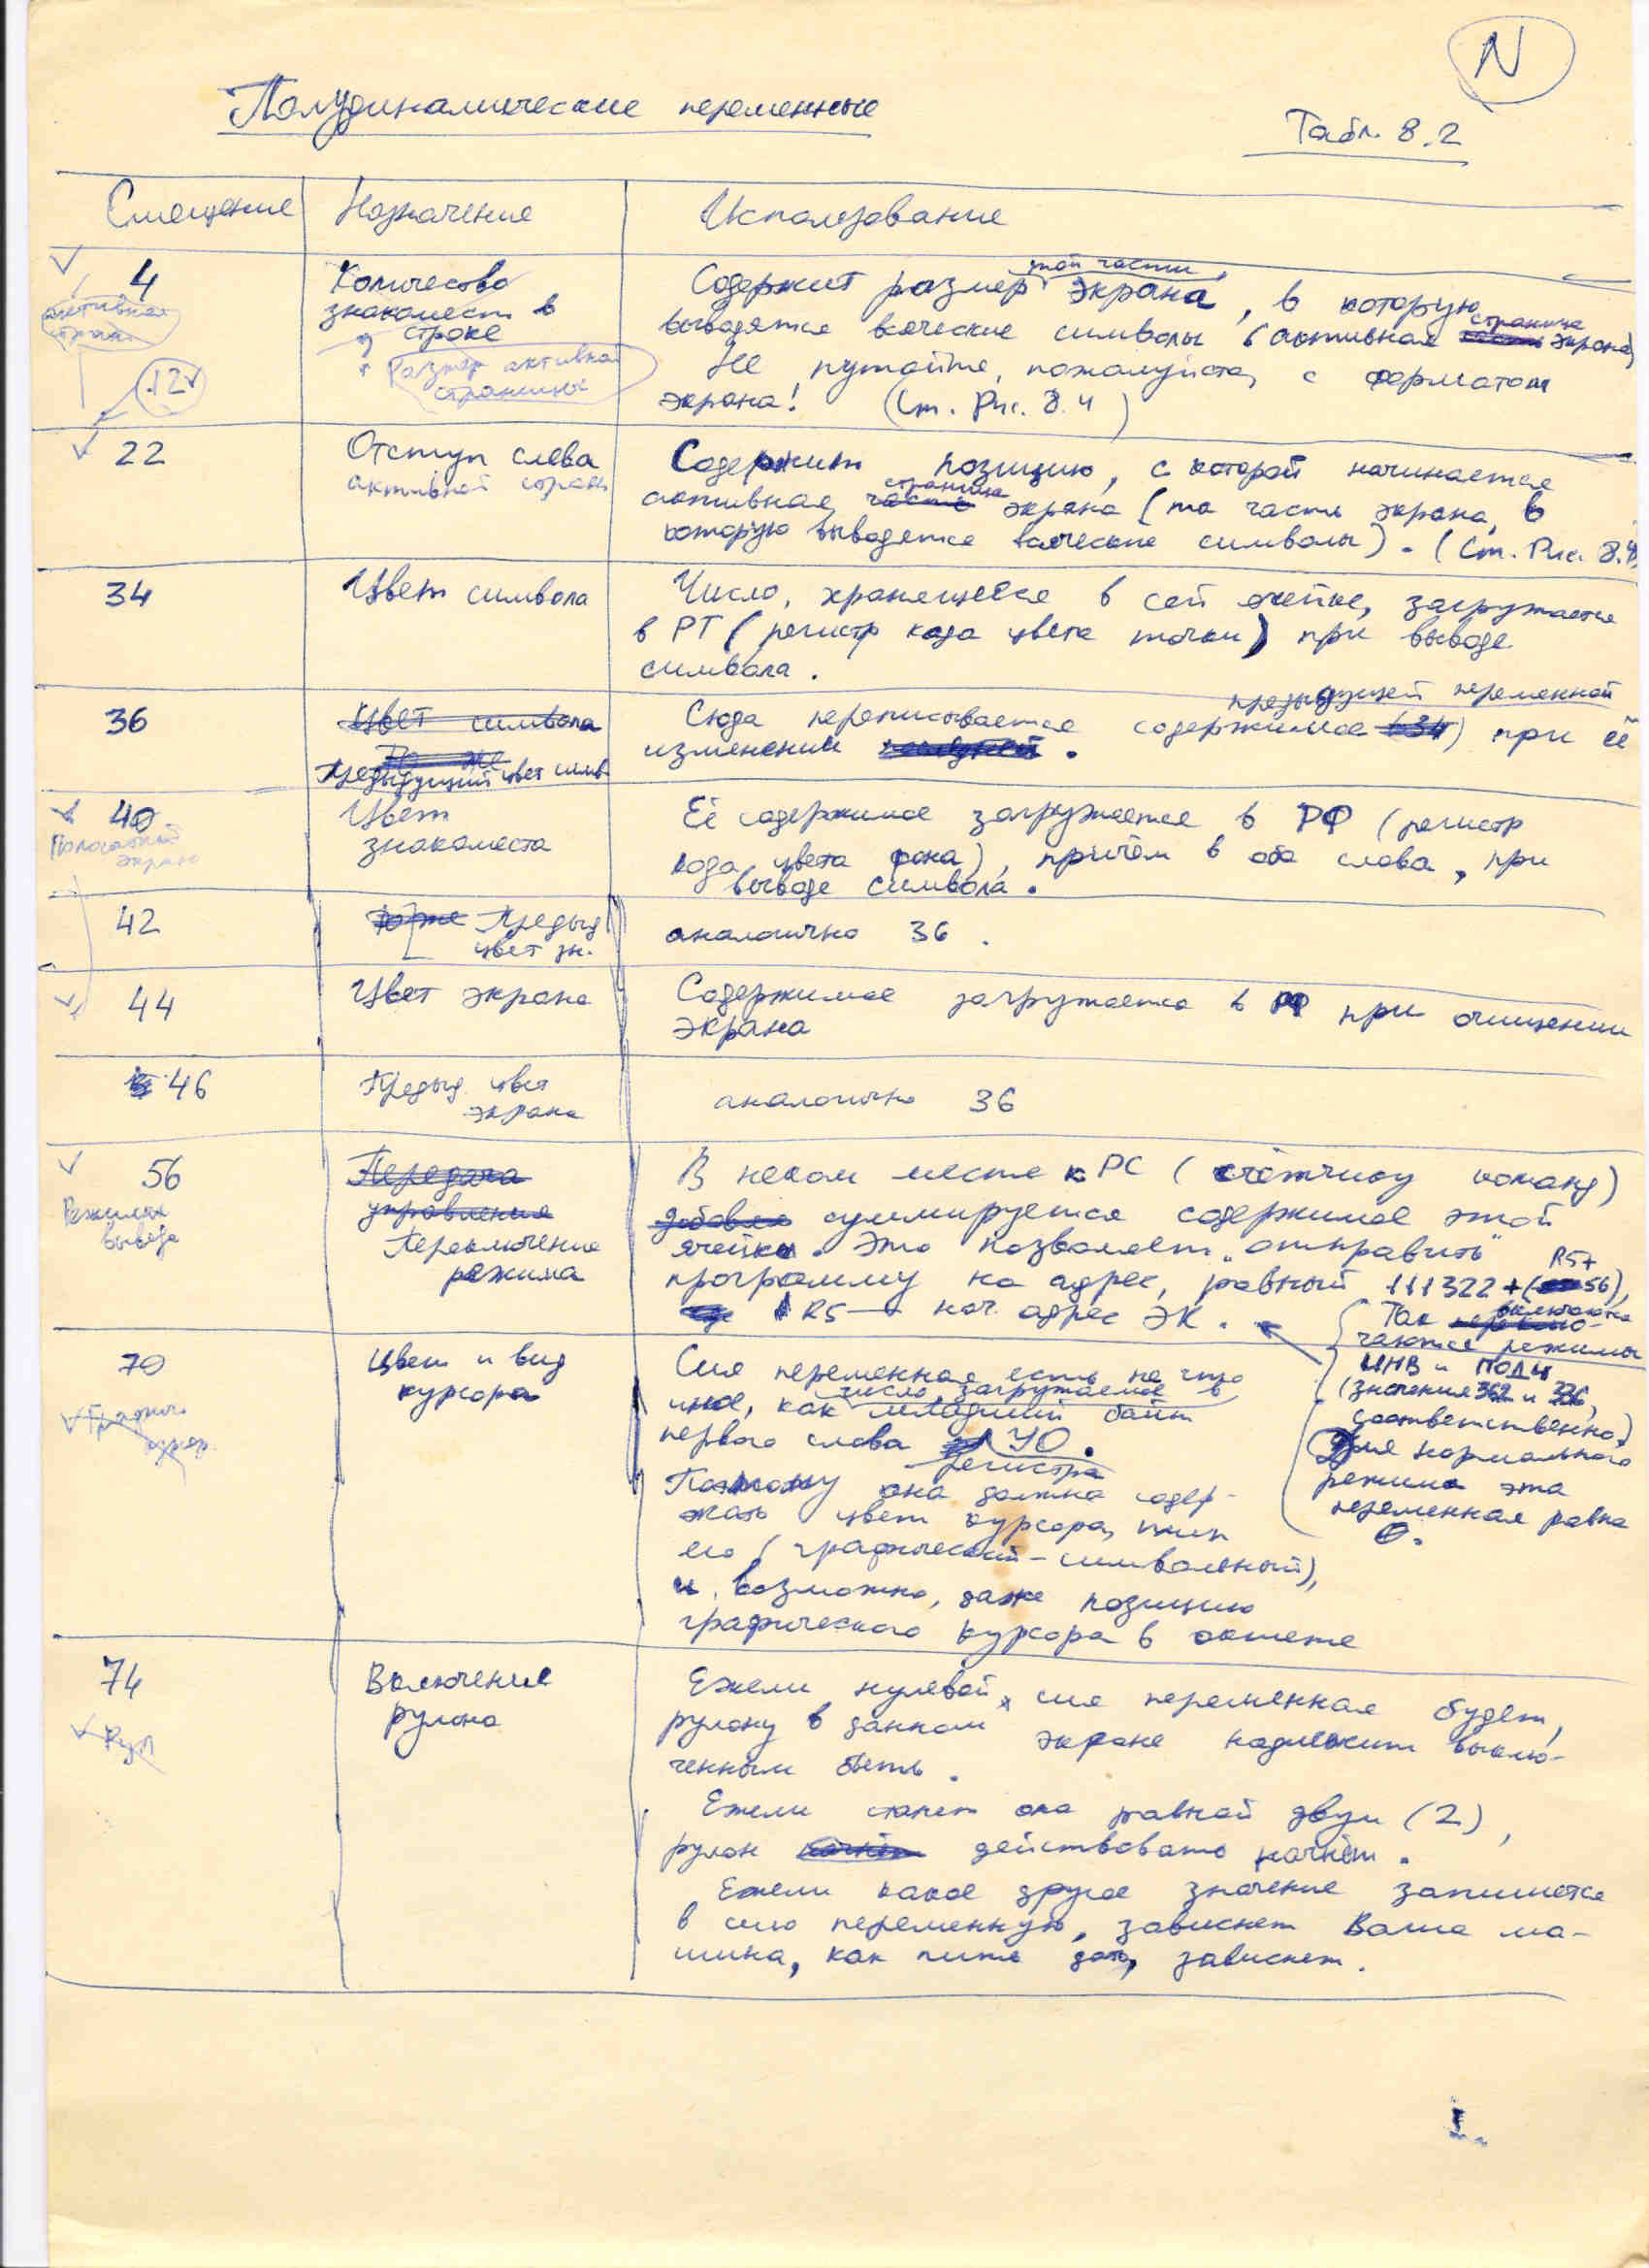 N
Полудинамические переменные
Табл. 8.2
Смещение Назначение Использование
4
активная
стран.
12
Количество
знакомест в
строке
Размер активной
страницы
Содержит размер той части экрана, в которую
выводятся всяческие символы (активная страница экрана)
Не путайте, пожалуйста, с форматом
экрана! (См. Рис. 8.4)
22
Отступ слева
активной стран
Содержит позицию, с которой начинается
активная страница экрана (та часть экрана, в
которую выводятся всяческие символы). (См. Рис. 8.4)
34
Цвет символа
Число, хранящееся в сей ячейке, загружается
в РТ (регистр кода цвета точки) при выводе
символа.
36
Цвет символа
То же
Предыдущий цвет симв
Сюда переписывается содержимое (34) предыдущей переменной при её
изменении.
40
экрана
Цвет
знакоместа
Её содержимое загружается в РФ (регистр
кода цвета фона), причём в оба слова, при
выводе символа.
42
То же Предыд
цвет зн.
аналогично 36.
44
Цвет экрана
Содержимое загружается в РФ при очищении
экрана
46
Предыд. цвет
экрана
аналогично 36
56
Режимы
вывода
Передача
управления
Переключение
режима
В неком месте к PC (счётчику команд)
добавля суммируется содержимое этой
ячейки. Это позволяет "отправить"
программу на адрес, равный 111322+(R5+56),
R5 — нач. адрес ЭК.
Так включаются
режимы
ИНВ и ПОДЧ
(значения 362 и 336,
соответственно)
Для нормального
режима эта
переменная равна
0.
70
Графич.
курсор
Цвет и вид
курсора
Сия переменная есть не что
иное, как число, загружаемое в младший байт
первого слова регистра УО.
Поэтому она должна содер-
жать цвет курсора, тип
его (графический-символьный),
и, возможно, даже позицию
графического курсора в октете
74
Рул
Включение
рулона
Ежели нулевой сия переменная будет,
рулону в данном экране надлежит выклю-
ченным быть.
Ежели станет она равной двум (2),
рулон начнёт действовать начнёт.
Ежели какое другое значение запишется
в сию переменную, зависнет Ваша ма-
шина, как пить дать, зависнет.